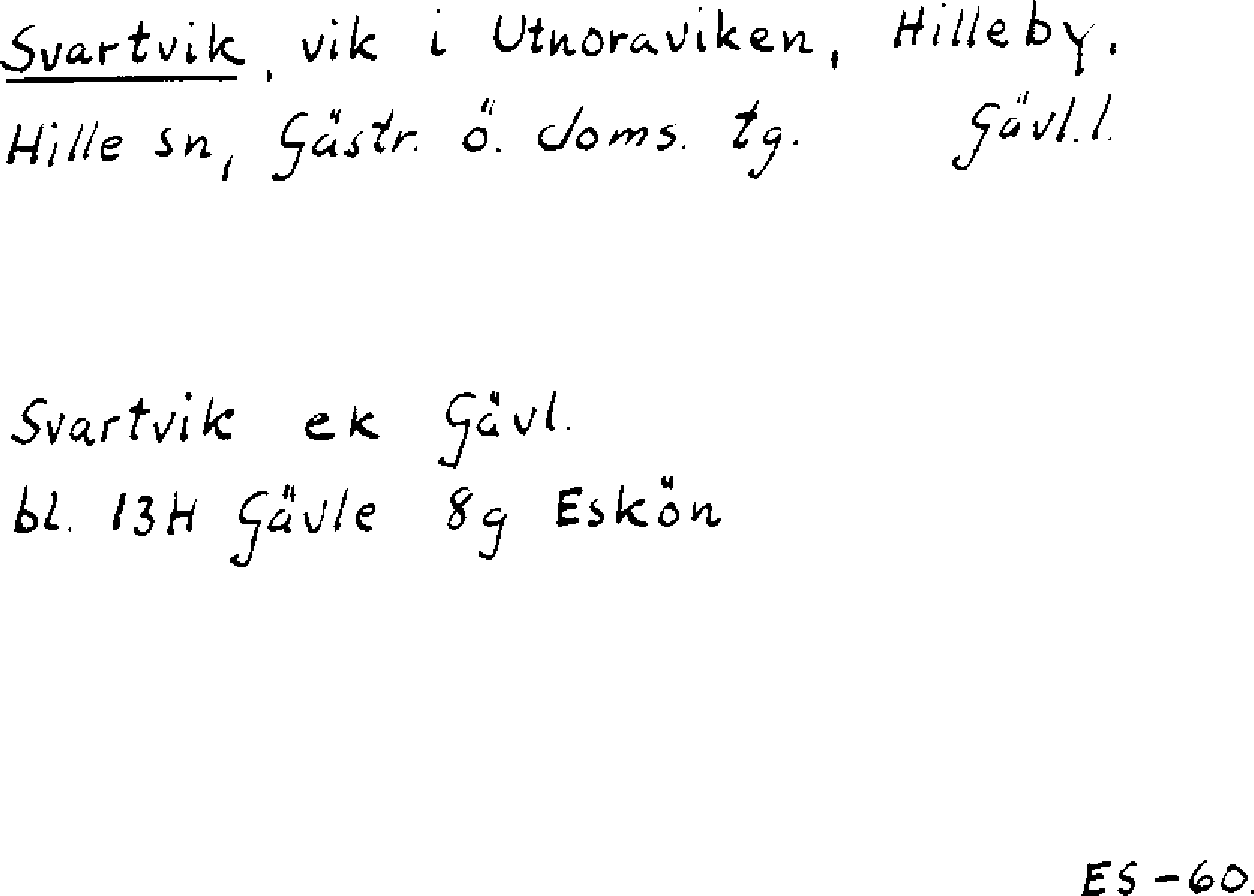 Svartvik, vik i Utnoraviken, Hilleby.
Hille sn, Gästr. ö. doms. tg. Gävl.l.
Svartvik ek Gävl.
bl. 13H Gävle 8g Eskön
ES-60.